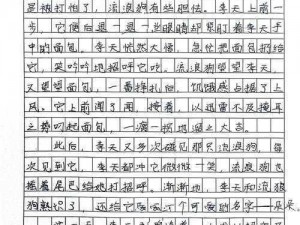 是被打怕了，流浪狗有些胆怯。李天上前一
步，它便后退一步，一双眼睛却紧盯着李天手
中的面包，李天恍然大悟，急忙把面包扔给
它，笑吟吟地招呼它吃。流浪狗望望李天，
又望望面包，一番挣扎后，饥饿感占据了上
风。它上前闻了闻，接着，以迅雷不及掩耳
之势叼起面包，一溜烟地溜之大吉。
此后，李天又多次碰见那只流浪狗。每
次见到它，李天都冲它微微一笑，流浪狗也
摇着尾巴给他打招呼。渐渐地，李天和流浪
狗熟识了，还给它取了个可爱的名字—朵朵。